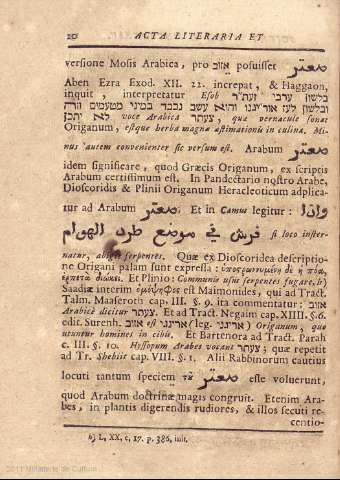 20 ACTA LITERARIA ET
versione Mosis Arabica, pro אזוב posuisset صعتر
Aben Ezra Exod. XII. 22. increpat, & Haggaon,
inquit, interpretatur Esob בלשון ערבי צעת״ר
ובלשון לעז אוריגנו והוא עשב נכבד במיני מטעמים וזה
לא יתכן voce Arabica צעתר, quæ vernacule sonat
Origanum, estque herba magnæ æstimationis in culina. Mi-
nus autem convenienter sic versum est. Arabum صعتر
idem significare, quod Græcis Origanum, ex scriptis
Arabum certissimum est. In Pandectario nostro Arabe,
Dioscoridis & Plinii Origanum Heracleoticum adplica-
tur ad Arabum صعتر. Et in Camus legitur: واذا
فرش في موضع طرد الهوام si loco inster-
natur, abiget serpentes. Quæ ex Dioscoridea descriptio-
ne Origani palam sunt expressa: ὑποςρωννυμένη δὲ ἡ πόα,
ἑρπετὰ διώκει. Et Plinio: Communis usus serpentes fugare, b)
Saadiæ interim ὁμόψηφος est Maimonides, qui ad Tract.
Talm. Maaseroth cap. III. §. 9. ita commentatur: אזוב
Arabicè dicitur צעתר. Et ad Tract. Negaim cap. XIIII. §. 6.
edit. Surenh. אזוב est אריננו (leg. אריגנו) Origanum, quo
utuntur homines in cibis. Et Bartenora ad Tract. Parah
c. III. §. 10. Hyssopum Arabes vocant צעתר; quæ repetit
ad Tr. Shebiit cap. VIII. §. 1. Alii Rabbinorum cautius
locuti tantum speciem τȣ̃ صعتر esse voluerunt,
quod Arabum doctrinæ magis congruit. Etenim Ara-
bes, in plantis digerendis rudiores, & illos secuti re-
centio-
b) L, XX, c, 17. p. 386, init.
2011 Ministerio de Cultura